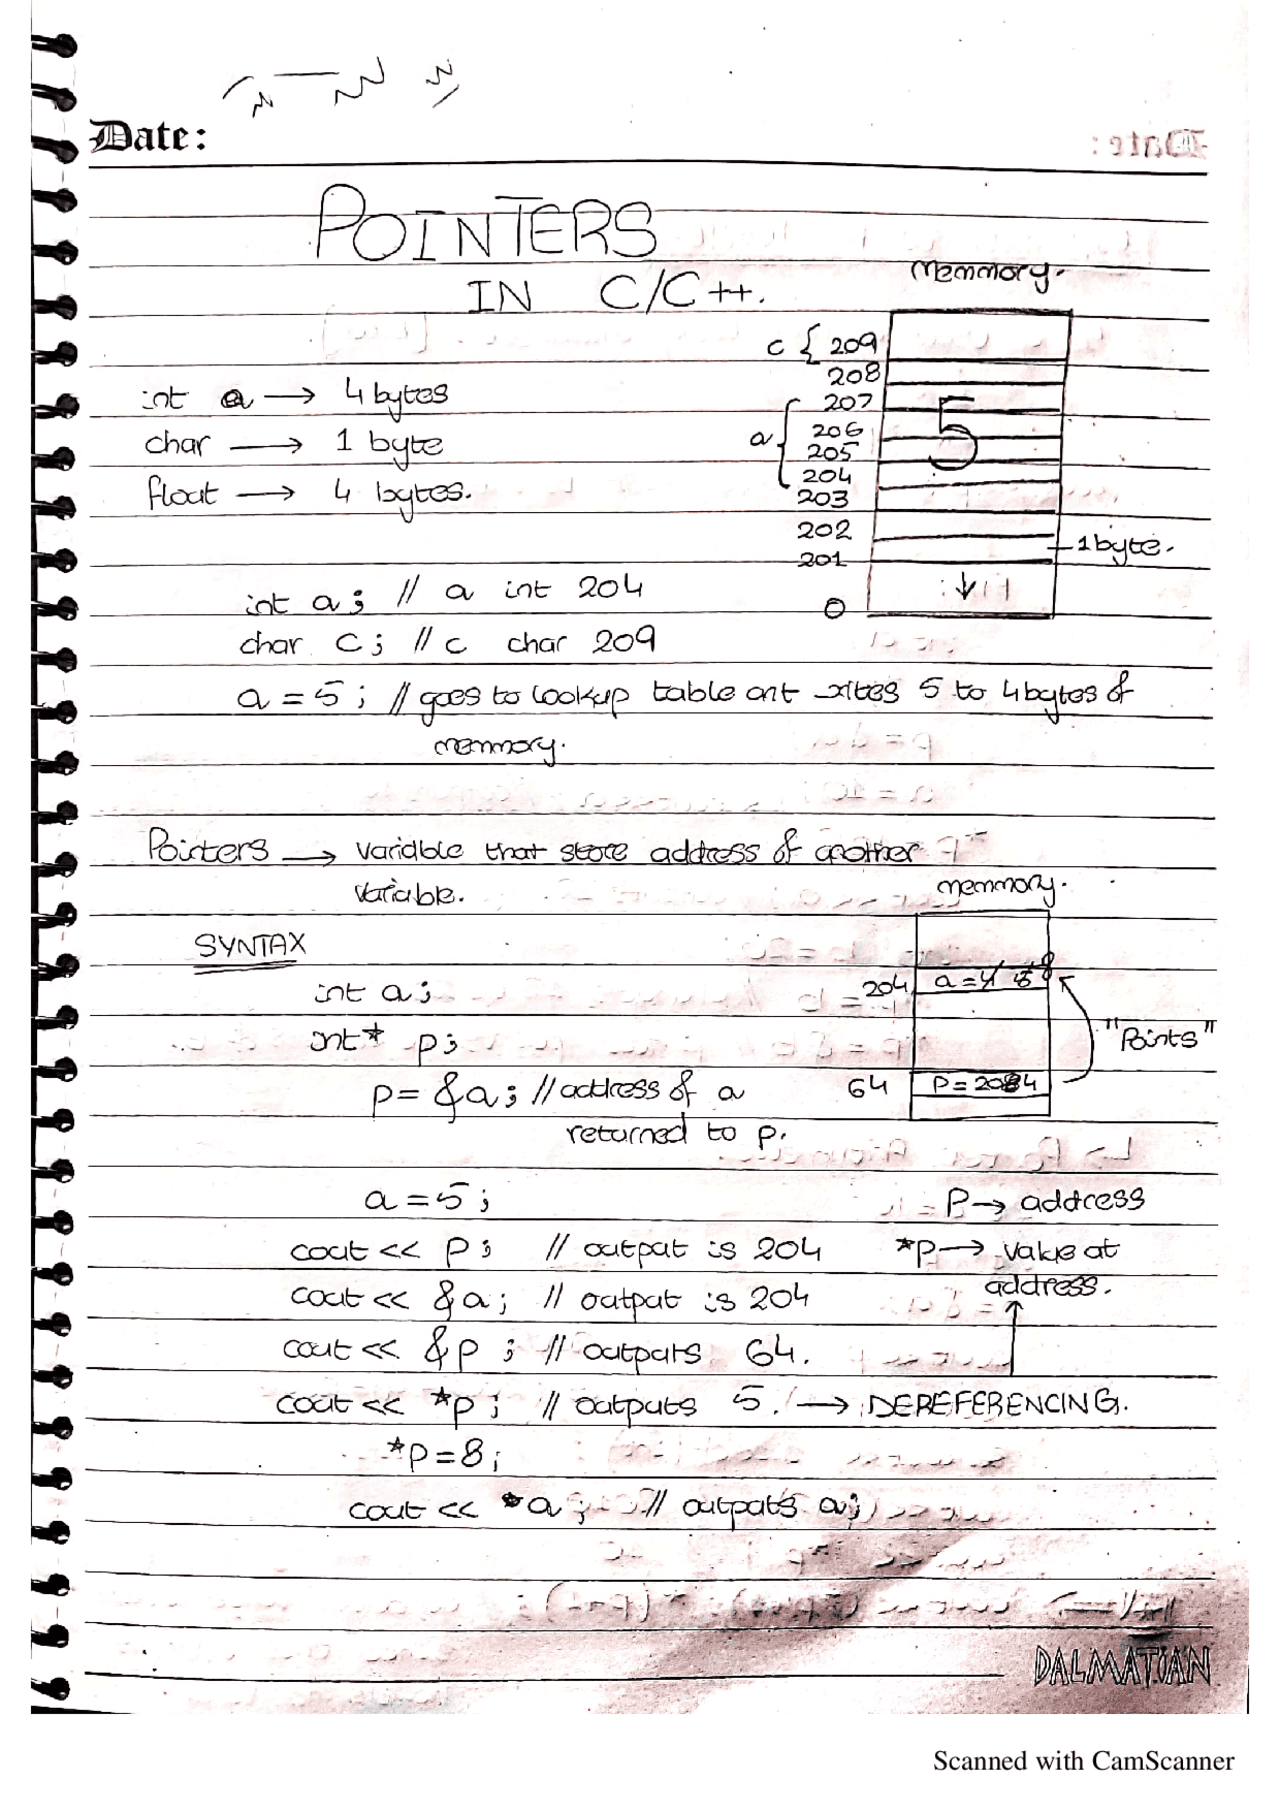 Date:
POINTERS
IN C/C++.
memmory.
c { 209
208
207
a { 206
205
204
203
202
201
0
5
1 byte.
int a → 4 bytes
char → 1 byte
float → 4 bytes.
int a; // a int 204
char c; // c char 209
a = 5; // goes to lookup table ant writes 5 to 4 bytes of
memmory.
Pointers → variable that store address of another
variable.
memmory.
SYNTAX
int a;
int* p;
p = &a; // address of a
returned to p.
204 a = 4 5 8
"Points"
64 P = 204
a = 5;
cout << p; // output is 204
cout << &a; // output is 204
cout << &p; // outputs 64.
cout << *p; // outputs 5. → DEREFERENCING.
*p = 8;
cout << a; // outputs a;
P → address
*p → value at
address.
DALMATIAN
Scanned with CamScanner